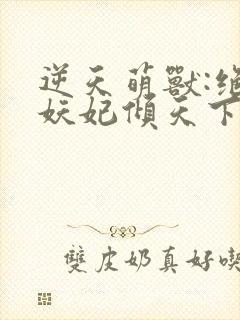 逆天萌獸:绝
妖妃傾天下
雙皮奶真好喫